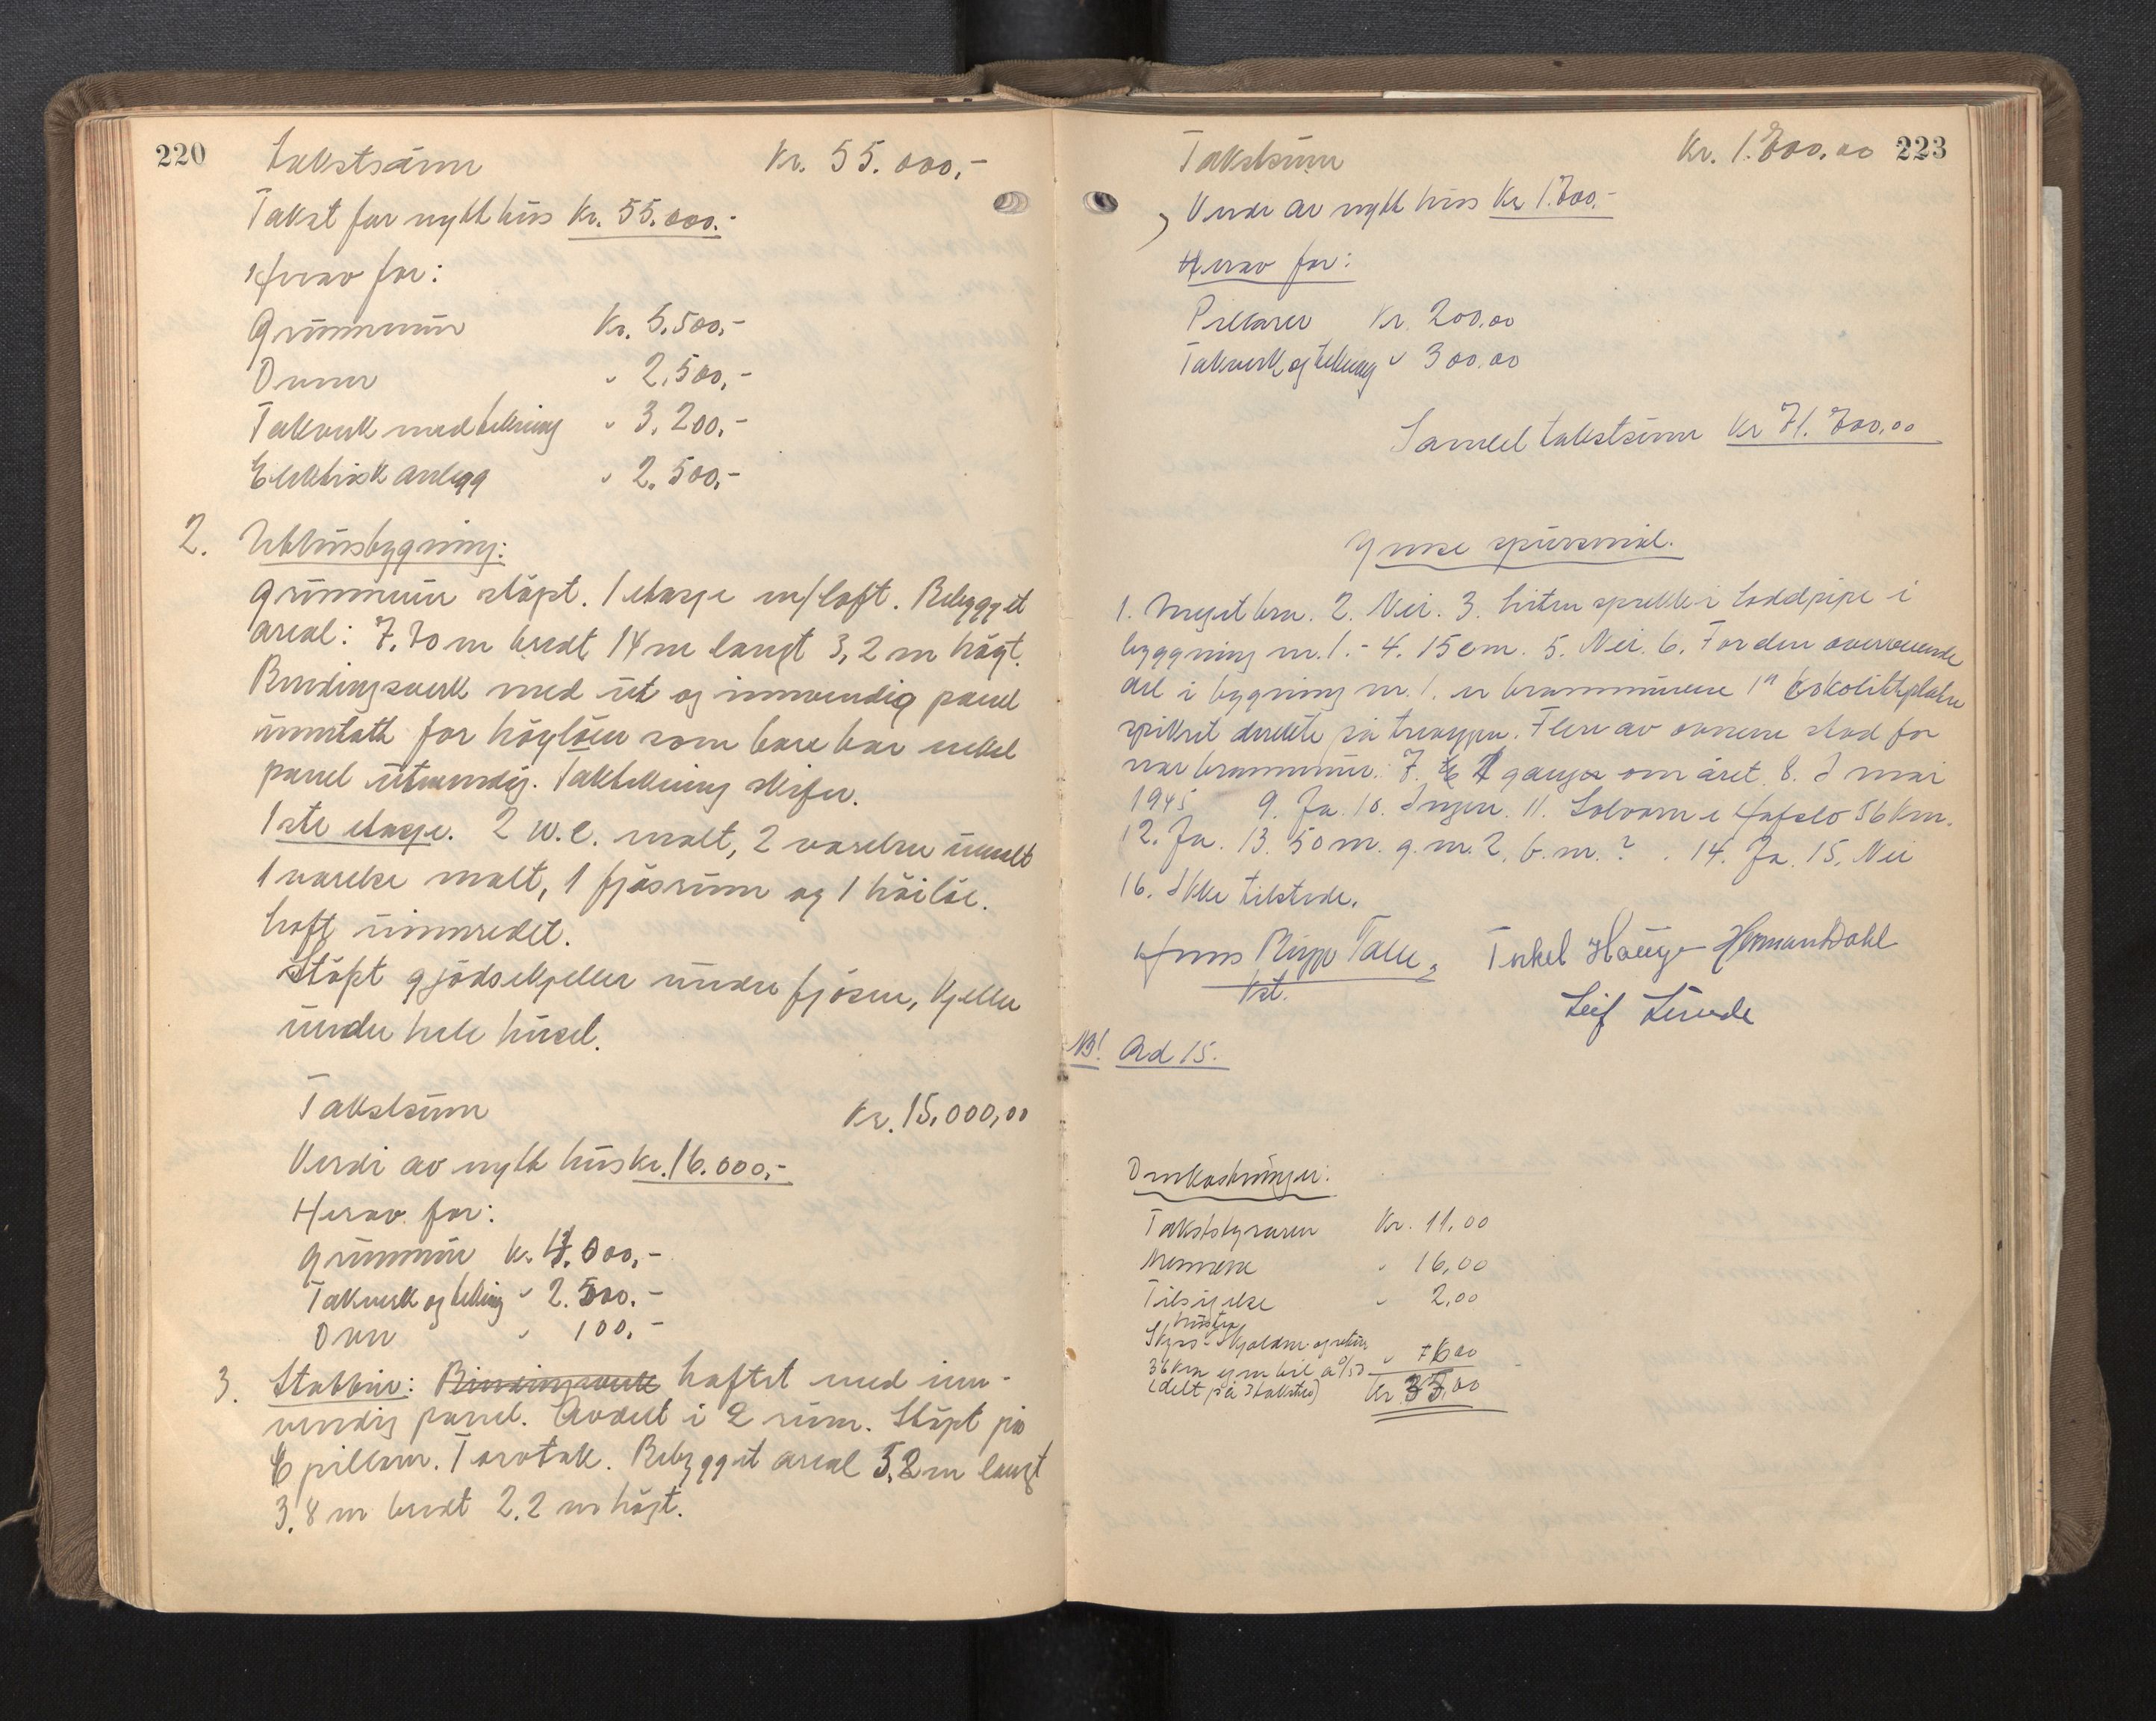 220
Takstsum Kr. 55.000,-
Takst for nytt hus Kr. 55.000.-
Herav for:
Grunnmur Kr. 5.500,-
Ovner " 2.500,-
Takverk med tekning " 3.200,-
Elektrisk anlegg " 2.500,-
2. Uthusbygning:
Grunnmur støpt. 1 etasje m/loft. Bebygget
areal: 7.70 m bredt 14 m langt 3,2 m høgt.
Bindingsverk med ut og innvendig panel
unntatt for høyløen som bare har enkel
panel utvendig. Taktekning skifer.
1ste etasje. 2 W.C. malt, 2 værelser umalt
1 værelse malt, 1 fjøsrum og 1 høiløe.
Loft uinnredet.
Støpt gjødselkjeller under fjøsen, kjeller
under hele huset.
Takstsum Kr. 15.000,00
Verdi av nytt hus kr. 16.000,-
Herav for:
Grunnmur kr. 4.000,-
Takverk og tekking " 2.500.-
Ovn " 100,-
3. Stabbur: Bindingsverk laftet med inn-
vendig panel. Avdelt i 2 rum. Støpt på
6 pillarer. Torvtak. Bebygget areal 5,2 m langt
3,8 m bredt 2.2 m høgt.
223
Takstsum Kr. 1.700,00
Verdi av nytt hus Kr 1.700.-
Herav for:
Pillarer Kr. 200,00
Takverk og tekning " 300,00
Samlet takstsum Kr 71.700,00
Ymse spursmål.
1. Meget bra. 2. Nei. 3. Liten sprekk i loddpipe i
byggning nr. 1. - 4. 15 cm. 5. Nei. 6. For den overveiende
del i bygning nr. 1. er brannmurene 1" Eskolittplater
spikret direkte på trevegger. Flere av ovnene stod for
nær brannmur. 7. 4 ganger om året. 8. I mai
1945 9. Ja. 10. Ingen. 11. Solvorn i Hafslo 56 km.
12. Ja. 13. 50 m. g.nr. 2, b.nr. ? . 14. Ja. 15. Nei
16. Ikke tilstede.
Hans Rupp Talle, Torkel Hauge Herman Dahl
kst. Leif Lunde
NB! Ad 15.
Omkostninger:
Takststyraren Kr. 11,00
Mennene " 16,00
Tilsigelse " 2,00
Skyss - Skjolden og retur " 6,00
36 km egen bil a 0/50
(delt på 3 takster) Kr 35,00